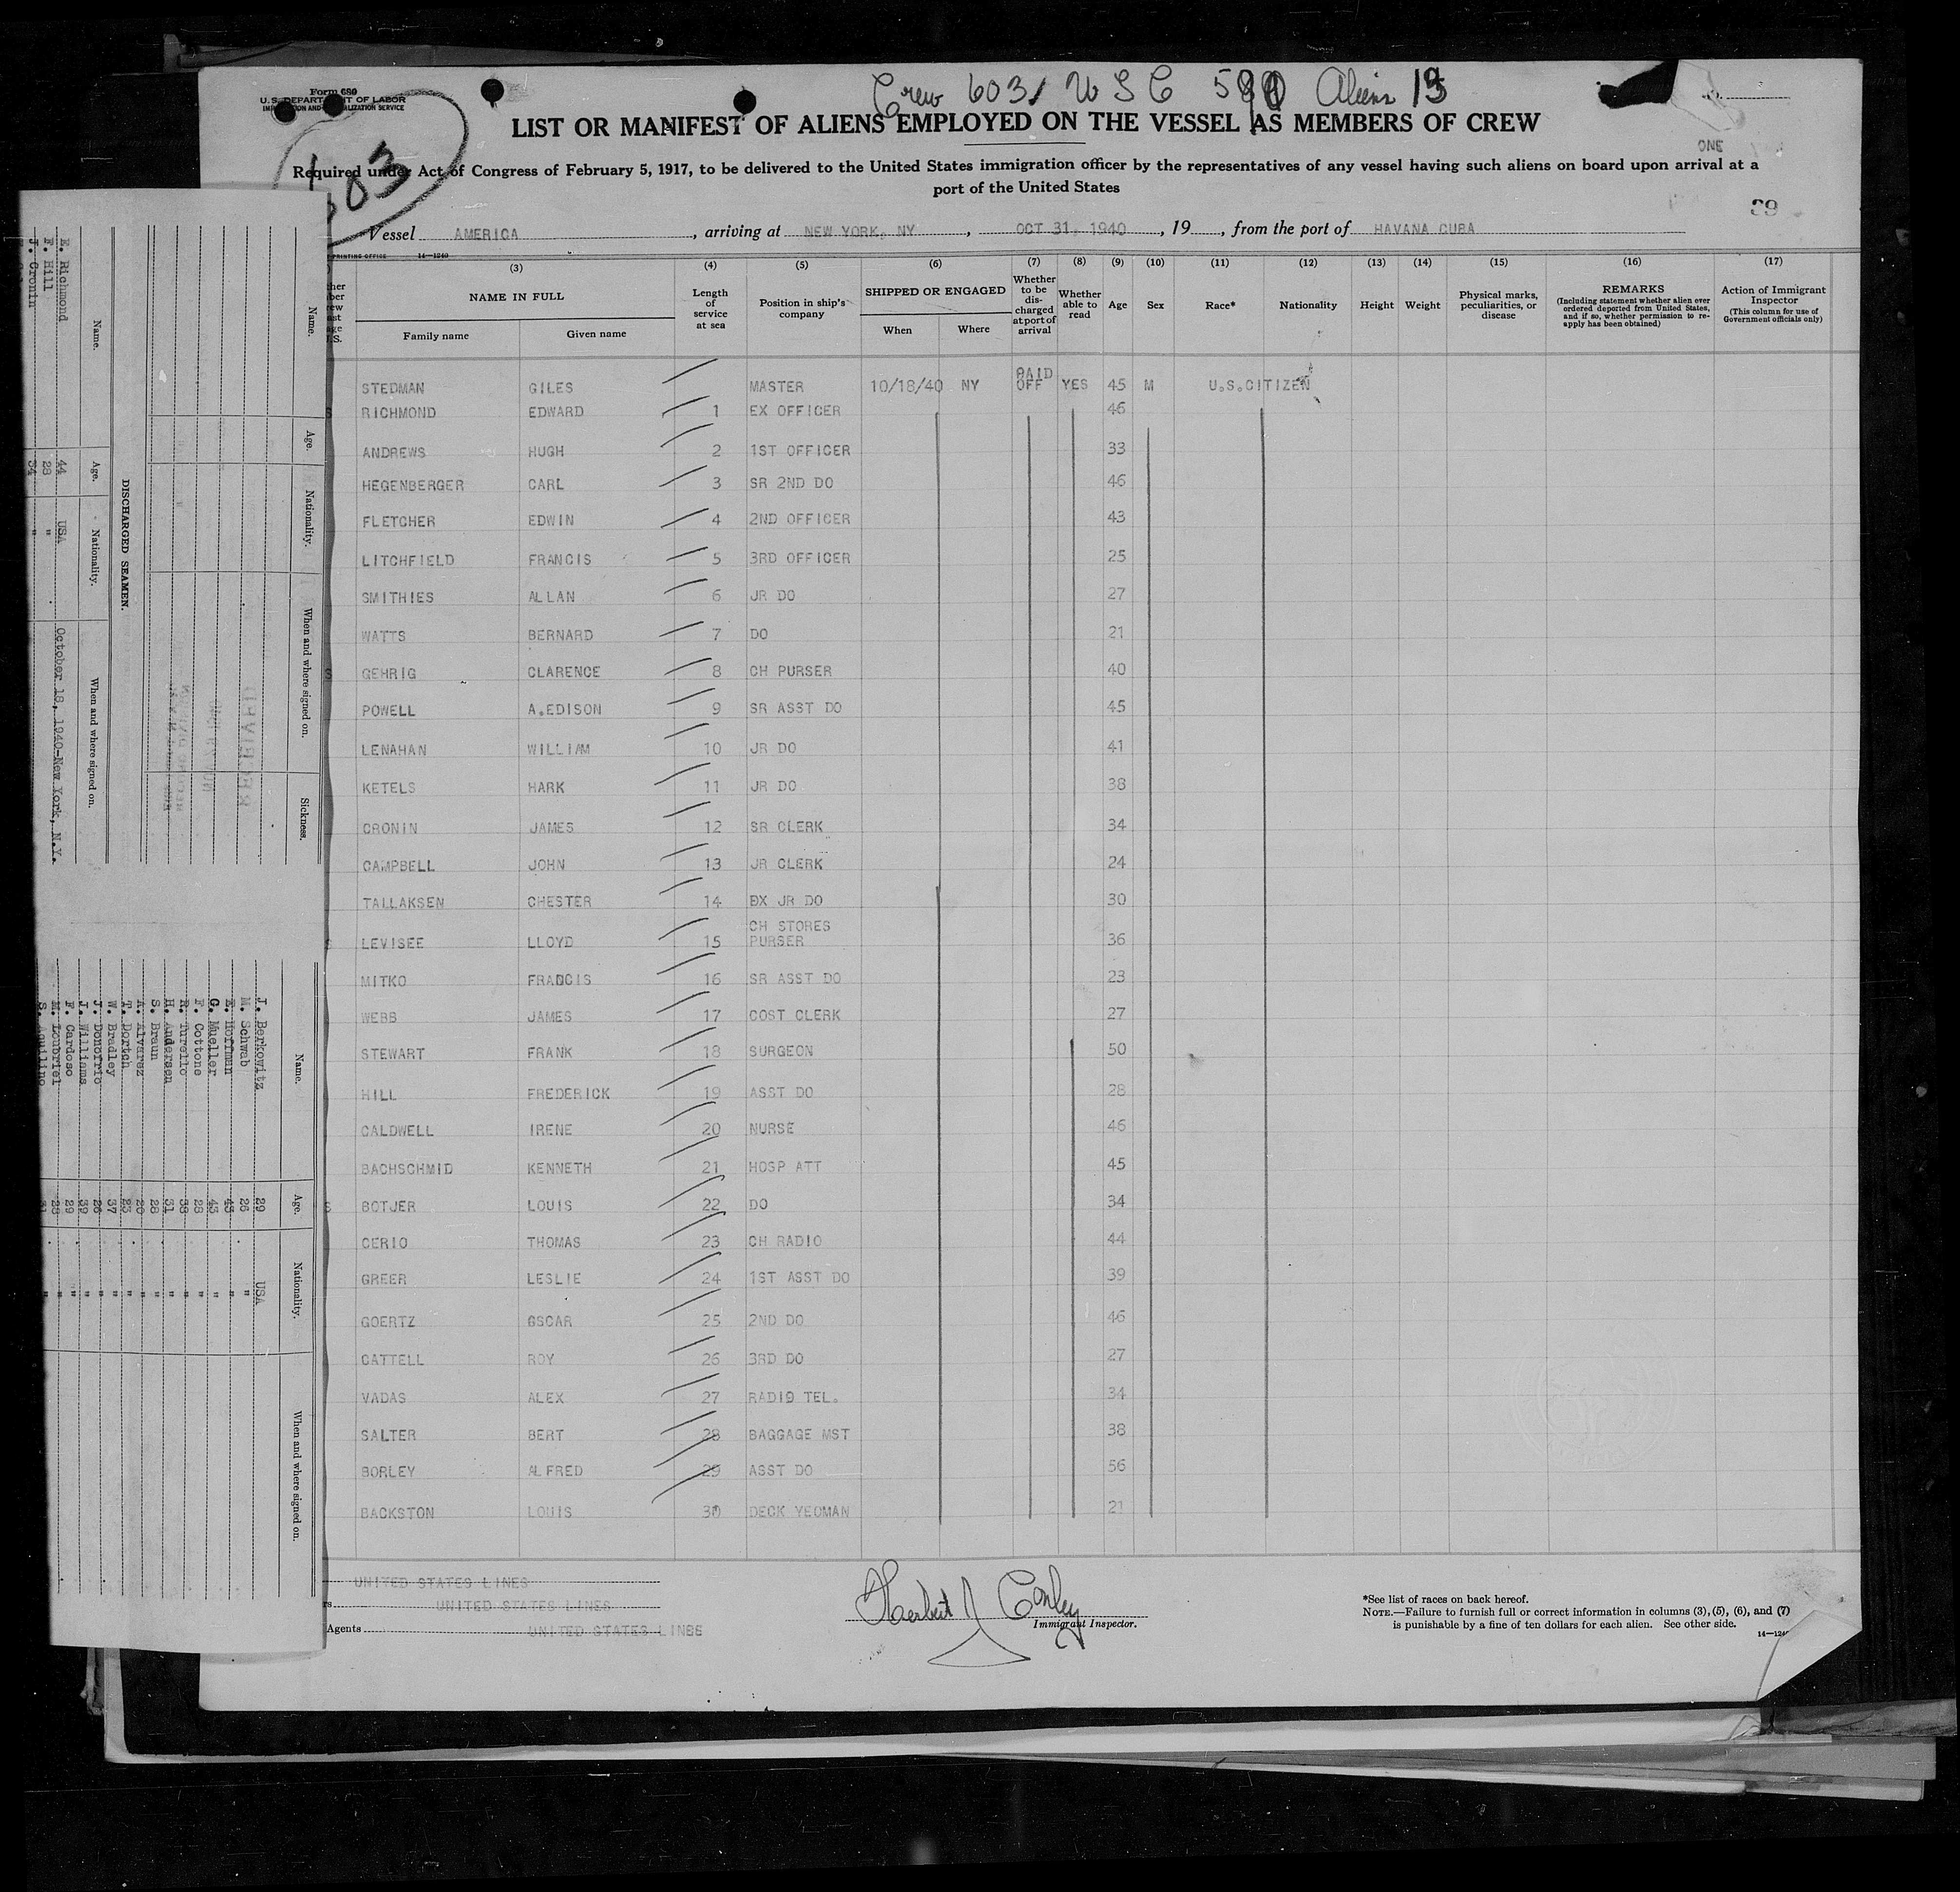 Form 680
U.S. DEPARTMENT OF LABOR
Crew 603 / USC Aliens
LIST OR MANIFEST OF ALIENS EMPLOYED ON THE VESSEL AS MEMBERS OF CREW
ONE
Required under Act of Congress of February 5, 1917, to be delivered to the United States immigration officer by the representatives of any vessel having such aliens on board upon arrival at a
port of the United States
603
39
Vessel AMERICA, arriving at NEW YORK, NY, OCT 31, 1940, 19, from the port of HAVANA CUBA
(3) (4) (5) (6) (7) (8) (9) (10) (11) (12) (13) (14) (15) (16) (17)
NAME IN FULL Family name Given name
Length of service at sea
Position in ship's company
SHIPPED OR ENGAGED When Where
Whether to be discharged at port of arrival
Whether able to read
Age Sex Race* Nationality Height Weight
Physical marks, peculiarities, or disease
REMARKS (Including statement whether alien ever ordered deported from United States, and if so, whether permission to reapply has been obtained)
Action of Immigrant Inspector (This column for use of Government officials only)
STEDMAN GILES MASTER 10/18/40 NY PAID OFF YES 45 M U.S.CITIZEN
RICHMOND EDWARD 1 EX OFFICER 46
ANDREWS HUGH 2 1ST OFFICER 33
HEGENBERGER CARL 3 SR 2ND DO 46
FLETCHER EDWIN 4 2ND OFFICER 43
LITCHFIELD FRANCIS 5 3RD OFFICER 25
SMITHIES ALLAN 6 JR DO 27
WATTS BERNARD 7 DO 21
GEHRIG CLARENCE 8 CH PURSER 40
POWELL A.EDISON 9 SR ASST DO 45
LENAHAN WILLIAM 10 JR DO 41
KETELS HARK 11 JR DO 38
CRONIN JAMES 12 SR CLERK 34
CAMPBELL JOHN 13 JR CLERK 24
TALLAKSEN CHESTER 14 EX JR DO 30
LEVISEE LLOYD 15 CH STORES PURSER 36
MITKO FRANCIS 16 SR ASST DO 23
WEBB JAMES 17 COST CLERK 27
STEWART FRANK 18 SURGEON 50
HILL FREDERICK 19 ASST DO 28
CALDWELL IRENE 20 NURSE 46
BACHSCHMID KENNETH 21 HOSP ATT 45
BOTJER LOUIS 22 DO 34
CERIO THOMAS 23 CH RADIO 44
GREER LESLIE 24 1ST ASST DO 39
GOERTZ OSCAR 25 2ND DO 46
CATTELL ROY 26 3RD DO 27
VADAS ALEX 27 RADIO TEL. 34
SALTER BERT 28 BAGGAGE MST 38
BORLEY ALFRED 29 ASST DO 56
BACKSTON LOUIS 30 DECK YEOMAN 21
UNITED STATES LINES
UNITED STATES LINES
Agents UNITED STATES LINES
Herbert J Conley
Immigrant Inspector.
*See list of races on back hereof.
NOTE.—Failure to furnish full or correct information in columns (3), (5), (6), and (7)
is punishable by a fine of ten dollars for each alien. See other side.
Name. Age. Nationality. When and where signed on. Sickness.
DISCHARGED SEAMEN.
Name. Age. Nationality. When and where signed on.
E. Richmond 44 USA October 18, 1940-New York, N.Y.
F. Hill 28 "
J. Cronin 34 "
Name. Age. Nationality. When and where signed on.
J. Berkowitz 29 USA
M. Schwab 26 "
E. Hoffman "
G. Mueller "
F. Cottone 28 "
R. Turello "
H. Andersen 31 "
S. Braun 28 "
A. Alvarez "
T. Dortch "
W. Bradley 37 "
J. Donofrio 26 "
J. Williams "
F. Cardoso 29 "
M. Loubriel "
S. Aquilino "